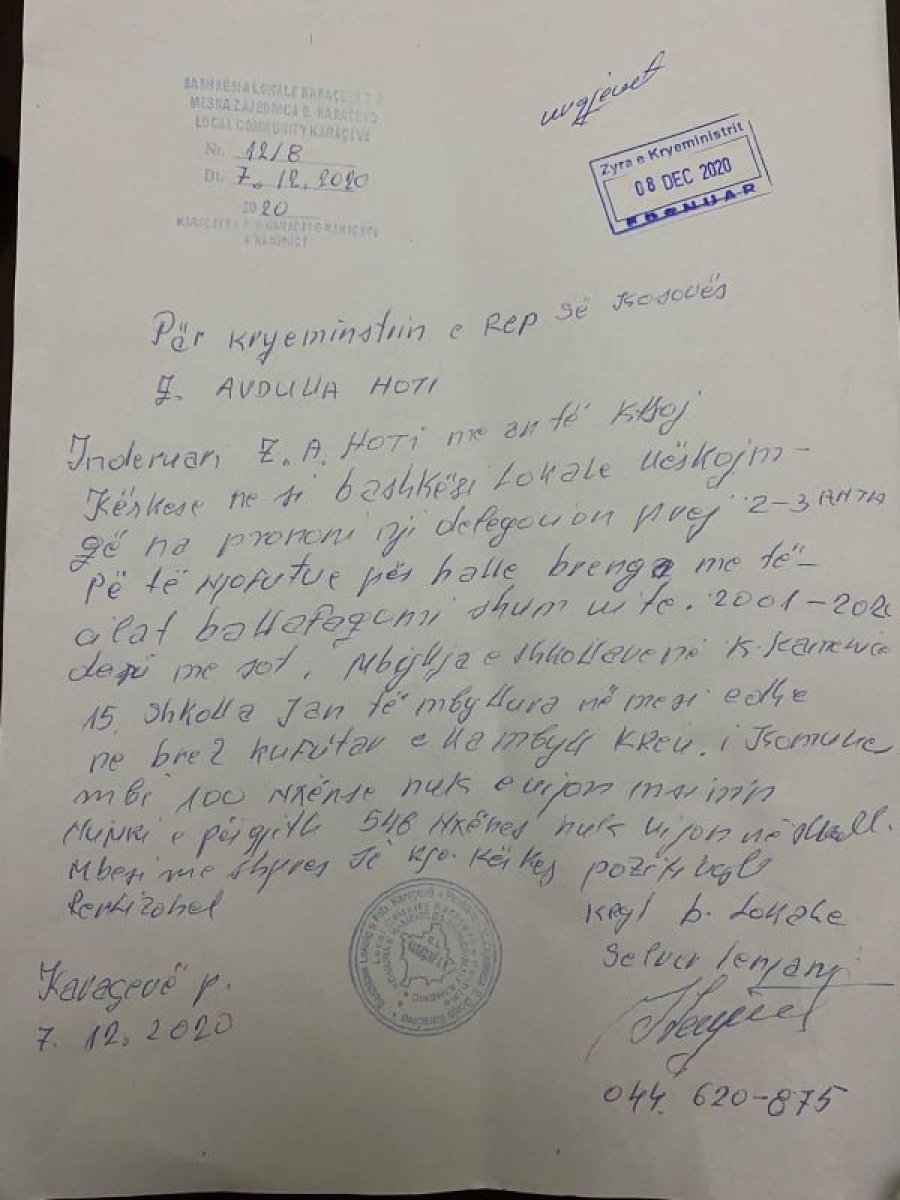 BASHKËSIA LOKALE KARAÇEVË
MESNA ZAJEDNICA D. KARAÇEVO
LOCAL COMMUNITY KARAÇEVË
Nr. 12/8
Dt. 7. 12. 2020
2020
urgjent
Zyra e Kryeministrit
08 DEC 2020
Për Kryeminstrin e REP së Kosovës
Z. AVDULLA HOTI
Inderuari Z. A. HOTI me an të Ksaj
Kërkese ne si bashkësi Lokale
që na pranoni nji delegacion prej 2-3
Pë të njoftue për halle brenga me të-
cilat ballafaqumi shum vite. 2001-2020
deri me sot. Mbyllja e shkollave në K. Kamenice
15. Shkolla Jan të mbyllura në mesi edhe
ne brez kufitar e ka mbyll Kreu. i Komune
mbi 100 Nxënse nuk e vijon msimin
546 Nxënes nuk vijon në shkoll.
Mbesi me shpres së kjo. Kërkes pozitivisht
Kryt b. Lokale
Selver
Karaçevë p.
7. 12. 2020
044. 620-875